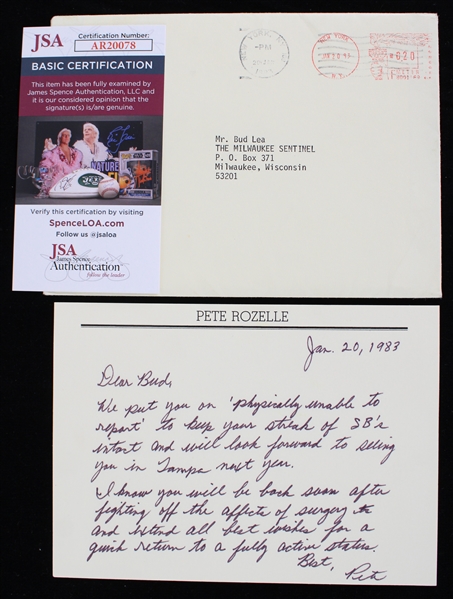 JSA
Certification Number:
AR20078
BASIC CERTIFICATION
This item has been fully examined by
James Spence Authentication, LLC and
it is our considered opinion that the
signature(s) is/are genuine.
NATURE
Verify this certification by visiting
SpenceLOA.com
Follow us @jsaloa
JSA
James Spence
Authentication
Follow the leader
NEW YORK
PM
NEW YORK
N.Y.
Mr. Bud Lea
THE MILWAUKEE SENTINEL
P. O. Box 371
Milwaukee, Wisconsin
53201
PETE ROZELLE
Jan. 20, 1983
Dear Bud,
We put you on 'physically unable to
report' to keep your streak of SB's
intact and will look forward to seeing
you in Tampa next year.
I know you will be back soon after
fighting off the affects of surgery
and extend all best wishes for a
quick return to a fully active status.
Best,
Pete